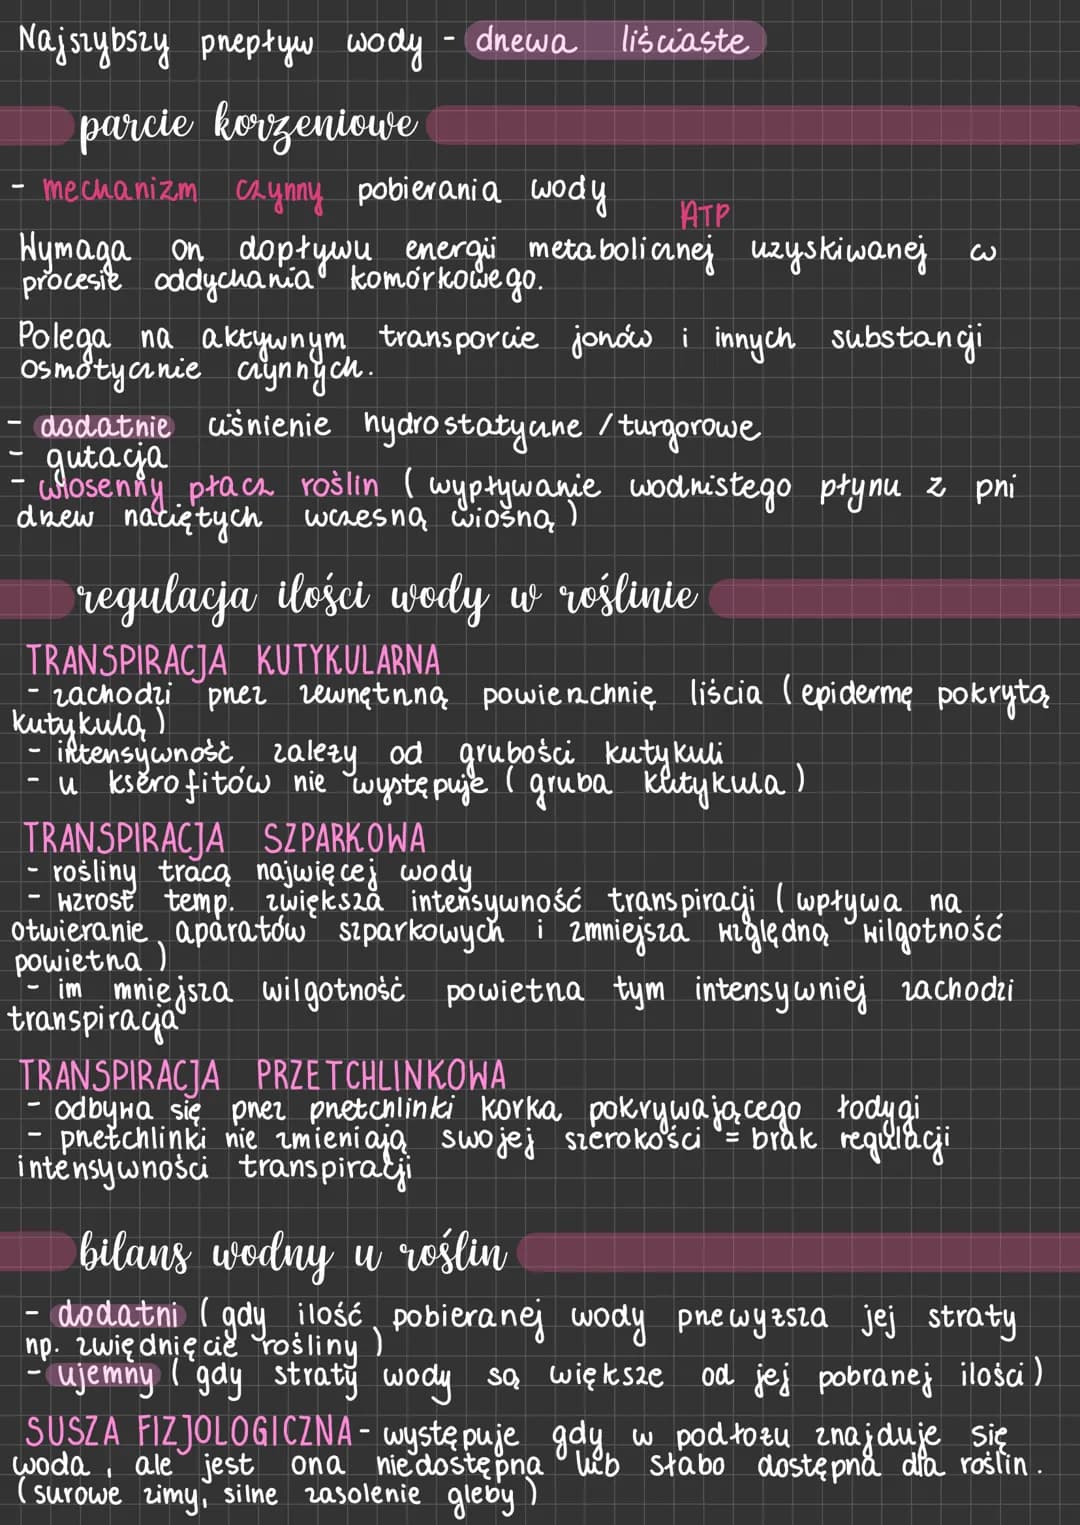 Najszybszy przepływ wody - drzewa liściaste
parcie korzeniowe
- mechanizm czynny pobierania wody
ATP
Wymaga on dopływu energii metabolicznej uzyskiwanej w
procesie oddychania komórkowego.
Polega na aktywnym transporcie jonów i innych substancji
osmotycznie czynnych.
- dodatnie ciśnienie hydrostatyczne / turgorowe
- gutacja
- wiosenny płacz roślin ( wypływanie wodnistego płynu z pni
drzew naciętych wczesną wiosną )
regulacja ilości wody w roślinie
TRANSPIRACJA KUTYKULARNA
- zachodzi przez zewnętrzną powierzchnię liścia ( epidermę pokrytą
kutykulą )
- intensywność zależy od grubości kutykuli
- u kserofitów nie występuje ( gruba kutykula )
TRANSPIRACJA SZPARKOWA
- rośliny tracą najwięcej wody
- wzrost temp. zwiększa intensywność transpiracji ( wpływa na
otwieranie aparatów szparkowych i zmniejsza względną wilgotność
powietrza )
- im mniejsza wilgotność powietrza tym intensywniej zachodzi
transpiracja
TRANSPIRACJA PRZETCHLINKOWA
- odbywa się przez przetchlinki korka pokrywającego łodygi
- przetchlinki nie zmieniają swojej szerokości = brak regulacji
intensywności transpiracji
bilans wodny u roślin
- dodatni ( gdy ilość pobieranej wody przewyższa jej straty
np. zwiędnięcie rośliny )
- ujemny ( gdy straty wody są większe od jej pobranej ilości )
SUSZA FIZJOLOGICZNA - występuje gdy w podłożu znajduje się
woda , ale jest ona niedostępna lub słabo dostępna dla roślin.
( surowe zimy, silne zasolenie gleby )